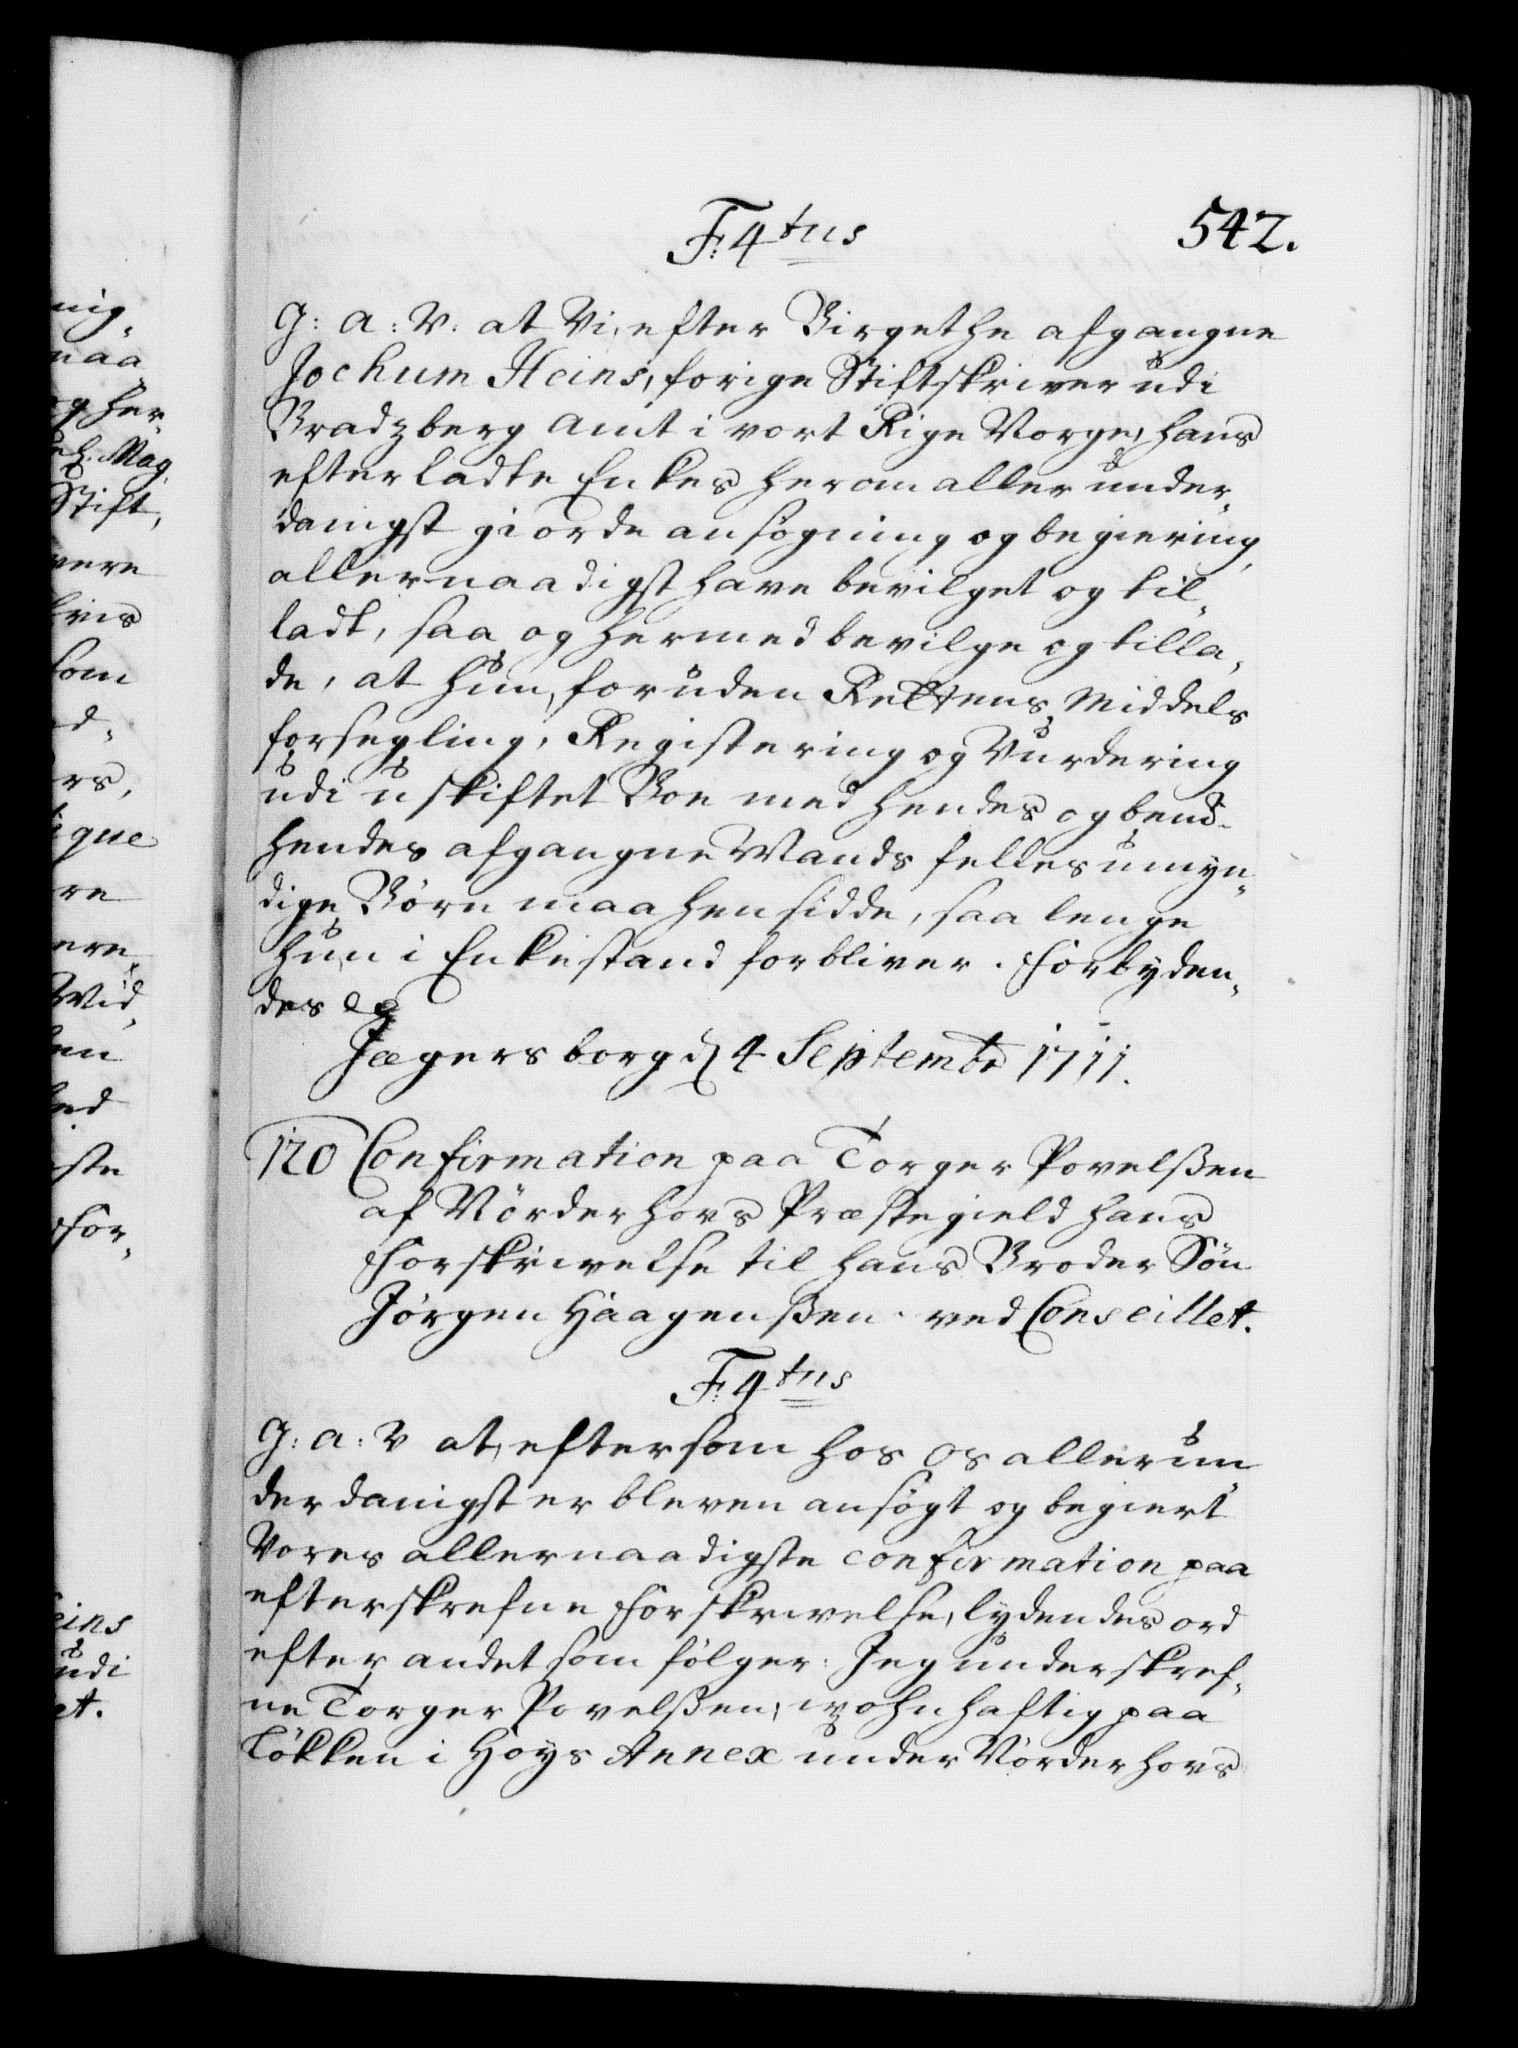 542.
F: 4tus
G: a: V: at Vi, efter Birgethe afgangne
Jochum Heins, forige Stiftskriver udi
Bradzberg Amt i vort Rige Norge, hans
efterladte Enkes herom allerunder„
danigst giorde ansøgning og begiering,
allernaadigst have bevilget og til„
ladt, saa og hermed bevilge og tilla„
de, at hun, foruden Rettens Middels
forsegling, Registering og Vurdering
udi uskiftet Boe med hendes og bemt.
hendes afgangne Mands felles umyn„
dige Børn maa hensidde, saa lenge
hun i Enkestand forbliver. Forbyden„
des etc
Jægersborg d 4 Septembr 1711.
120 Confirmation paa Torger Povelßen
af Nörderhovs Præstegield hans
Forskrivelse til hans Broder Søn
Jörgen Haagenßen. ved Conseillet.
F: 4tus
G: a: V at, eftersom hos os allerun
derdanigst er bleven ansøgt og begiert
Vores allernaadigste confirmation paa
efterskrefne Forskrivelse, lydendes ord
efter andet som følger: Jeg underskref„
ne Torger Povelßen, wohnhaftig paa
Lökken i Höys Annex under Nörderhovs
nig„
maa
og her„
Mag„
Stift,
were
som
d„
rs,
ique
re
Wid„
ste
For„
eins
udi
et.